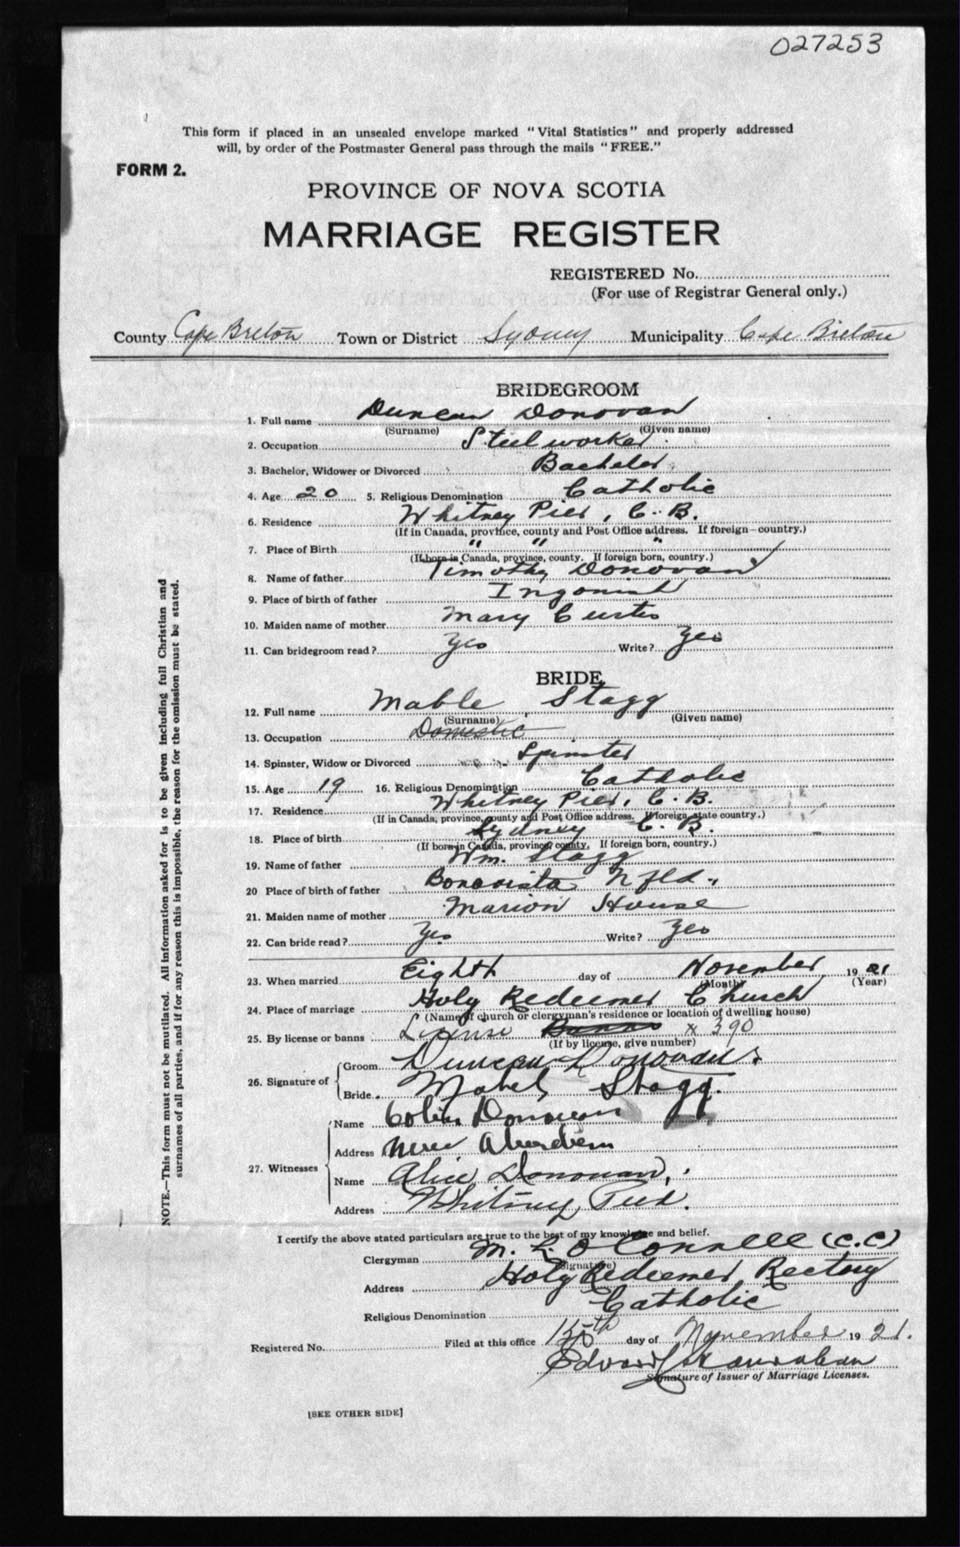 027253
This form if placed in an unsealed envelope marked "Vital Statistics" and properly addressed
will, by order of the Postmaster General pass through the mails "FREE."
FORM 2.
PROVINCE OF NOVA SCOTIA
MARRIAGE REGISTER
REGISTERED No.
(For use of Registrar General only.)
County Cape Breton Town or District Sydney Municipality Cape Breton
BRIDEGROOM
1. Full name Duncan Donovan
(Surname) (Given name)
2. Occupation Steel worker
3. Bachelor, Widower or Divorced Bachelor
4. Age 20 5. Religious Denomination Catholic
6. Residence Whitney Pier, C. B.
(If in Canada, province, county and Post Office address. If foreign—country.)
7. Place of Birth " " "
(If born in Canada, province, county. If foreign born, country.)
8. Name of father Timothy Donovan
9. Place of birth of father Ingonish
10. Maiden name of mother Mary Curtis
11. Can bridegroom read? Yes Write? Yes
BRIDE
12. Full name Mable Stagg
(Surname) (Given name)
13. Occupation Domestic
14. Spinster, Widow or Divorced Spinster
15. Age 19 16. Religious Denomination Catholic
17. Residence Whitney Pier, C. B.
(If in Canada, province, county and Post Office address. If foreign, state country.)
18. Place of birth Sydney C. B.
(If born in Canada, province, county. If foreign born, country.)
19. Name of father Wm. Stagg
20 Place of birth of father Bonavista Nfld.
21. Maiden name of mother Marion House
22. Can bride read? Yes Write? Yes
23. When married Eighth day of November 1921
(Month) (Year)
24. Place of marriage Holy Redeemer Church
(Name of church or clergyman's residence or location of dwelling house)
25. By license or banns License Banns x 390
(If by license, give number)
26. Signature of
Groom Duncan Donovan
Bride Mabel Stagg.
27. Witnesses
Name Colin Donovan
Address New Aberdeen
Name Alice Donovan
Address Whitney Pier.
I certify the above stated particulars are true to the best of my knowledge and belief.
Clergyman M. L. O'Connell (C.C)
(Signature)
Address Holy Redeemer Rectory
Religious Denomination Catholic
Registered No. Filed at this office 15th day of November 1921.
Edward
Signature of Issuer of Marriage Licenses.
[SEE OTHER SIDE]
NOTE.—This form must not be mutilated. All information asked for is to be given including full Christian and
surnames of all parties, and if for any reason this is impossible, the reason for the omission must be stated.